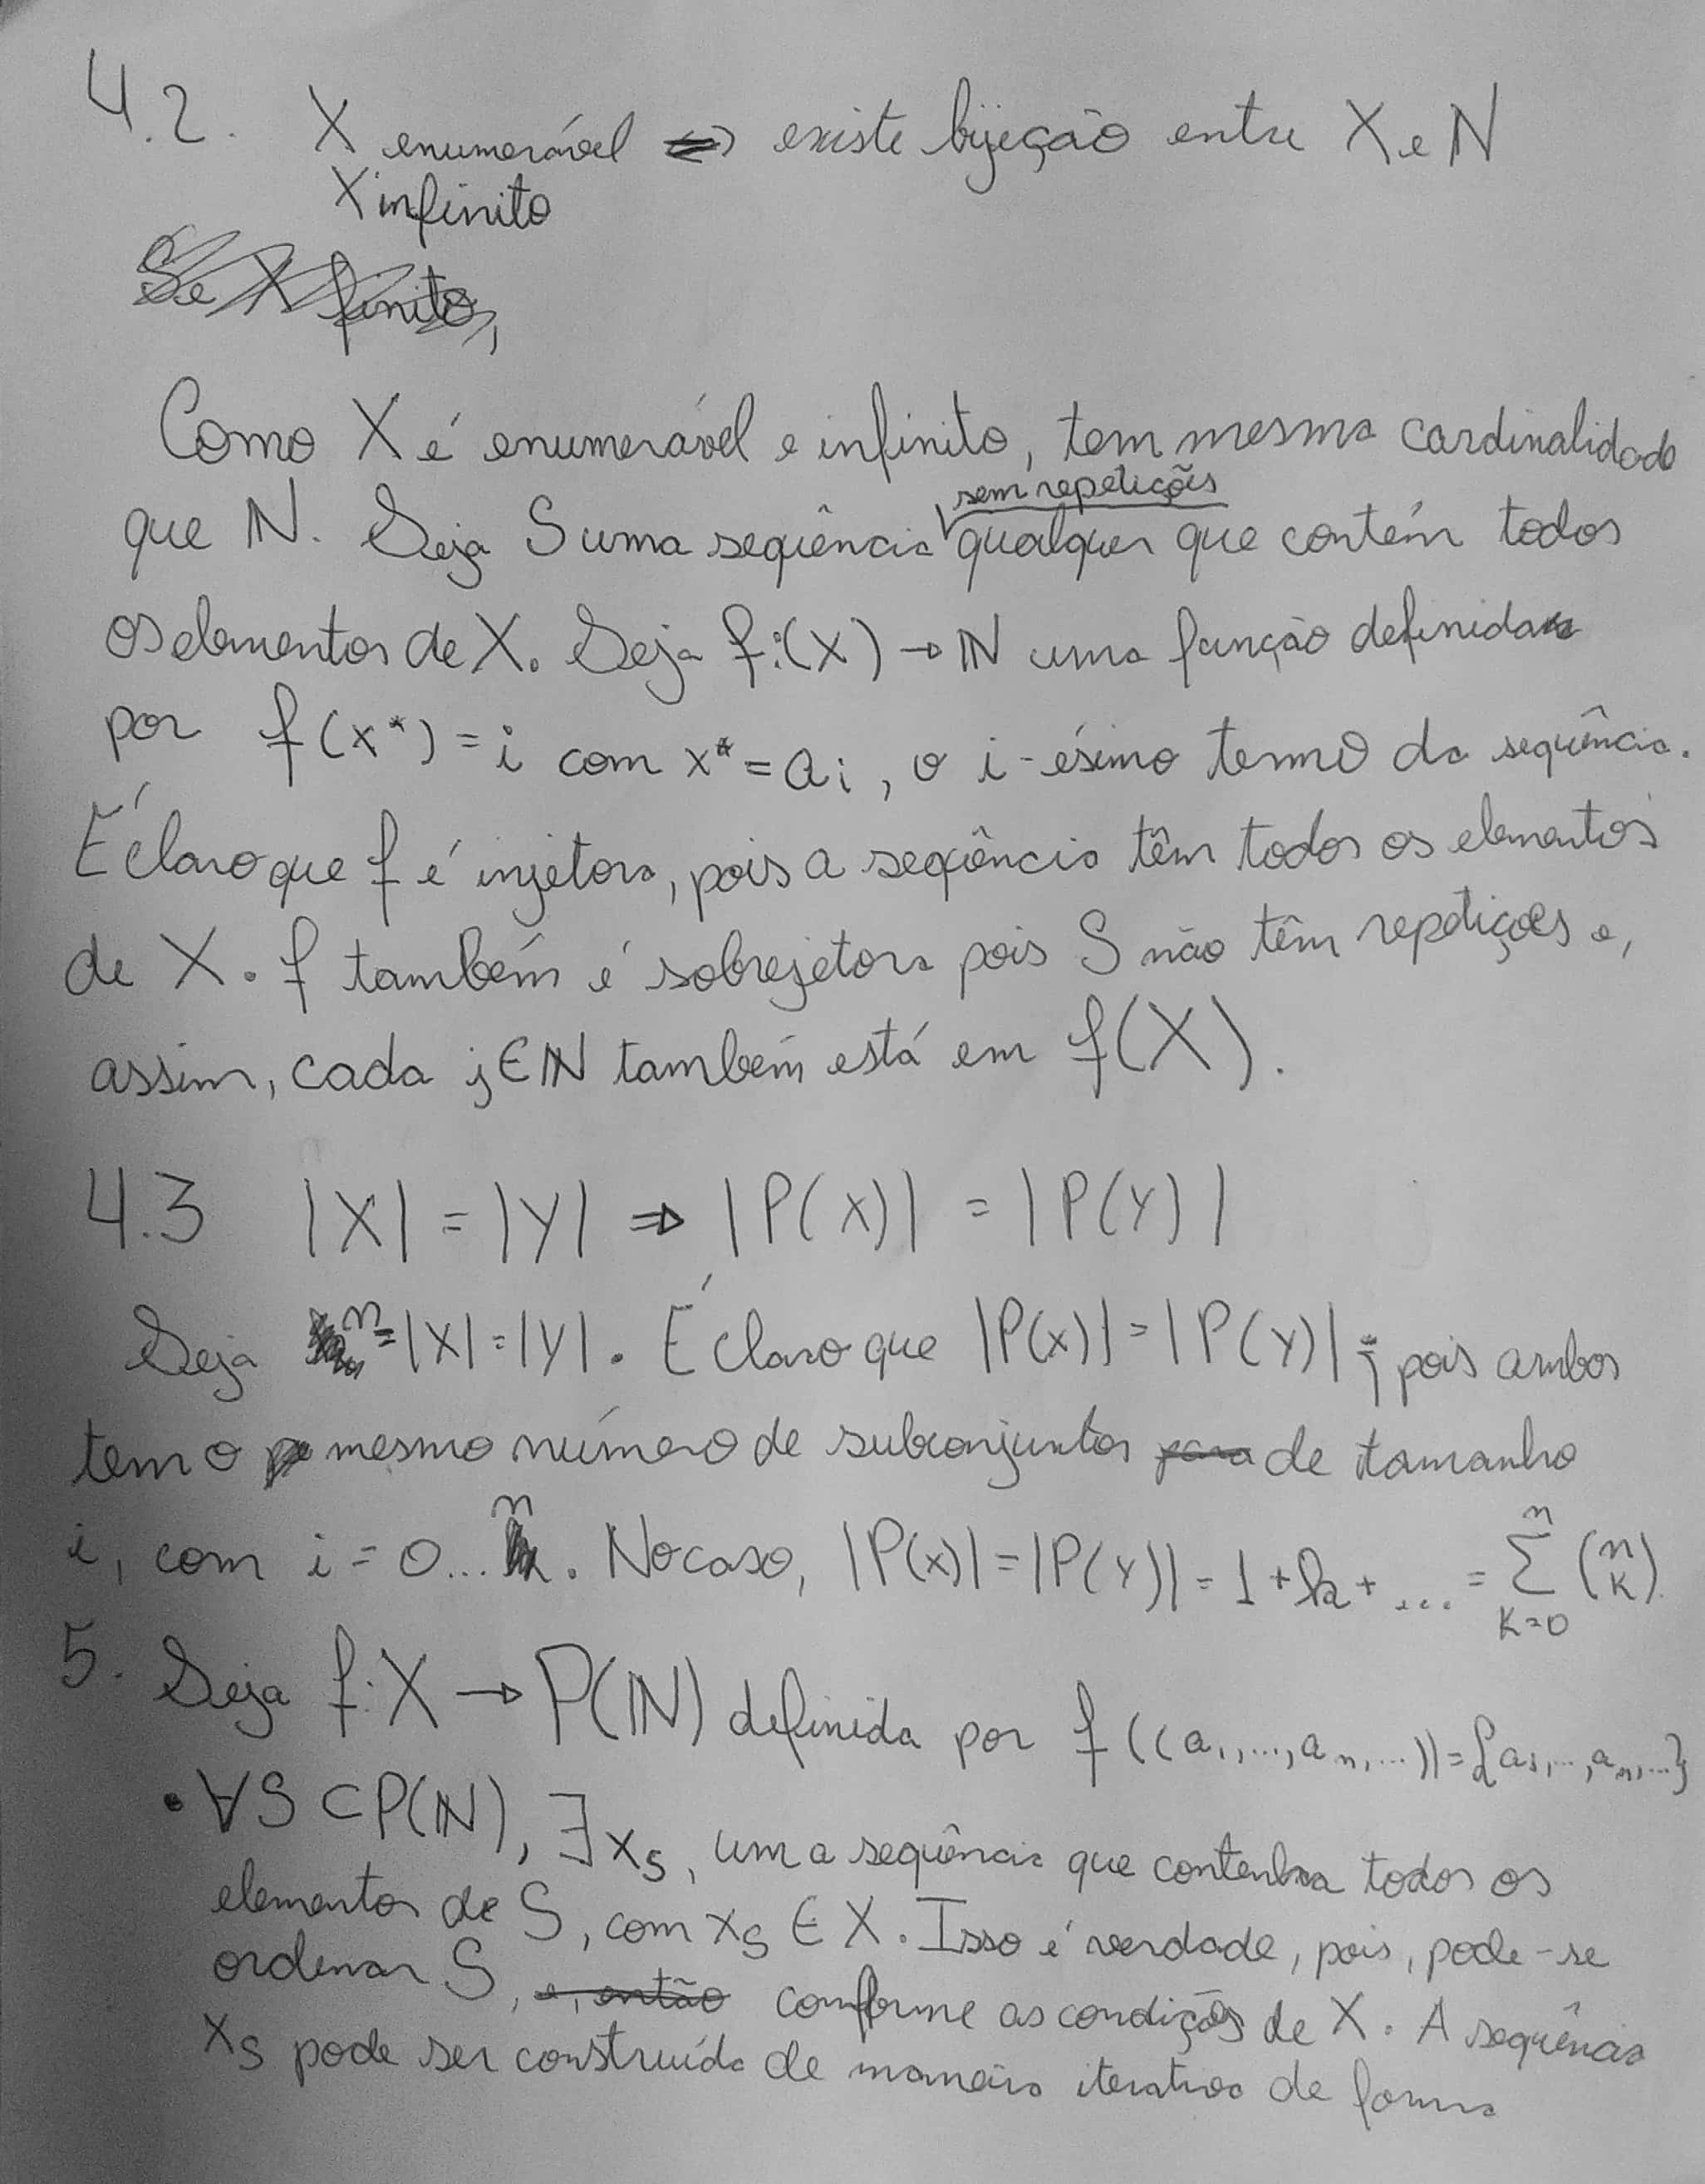 4.2. X enumerável ⇔ existe bijeção entre X e N
X infinito
Se X finito,
Como X é enumerável e infinito, tem mesma cardinalidade
sem repetições
que ℕ. Seja S uma sequência qualquer que contém todos
os elementos de X. Seja f:(X) → ℕ uma função definida
por f(x*) = i com x* = ai, o i-ésimo termo da sequência.
É claro que f é injetora, pois a sequência têm todos os elementos
de X. f também é sobrejetora pois S não têm repetições e,
assim, cada j ∈ ℕ também está em f(X).
4.3 |X| = |Y| ⇒ |P(X)| = |P(Y)|
Seja n = |X| = |Y|. É claro que |P(X)| = |P(Y)|, pois ambos
tem o mesmo número de subconjuntos de tamanho
i, com i = 0...n. No caso, |P(X)| = |P(Y)| = 1 + k + ... = ∑ₖ₌₀ⁿ (n k)
5. Seja f: X → P(ℕ) definida por f((a₁,...,aₙ,...)) = {a₁,...,aₙ,...}
• ∀S ⊂ P(ℕ), ∃ xs, uma sequência que contenha todos os
elementos de S, com xs ∈ X. Isso é verdade, pois, pode-se
ordenar S, e, então conforme as condições de X. A sequência
xs pode ser construída de maneira iterativa de forma